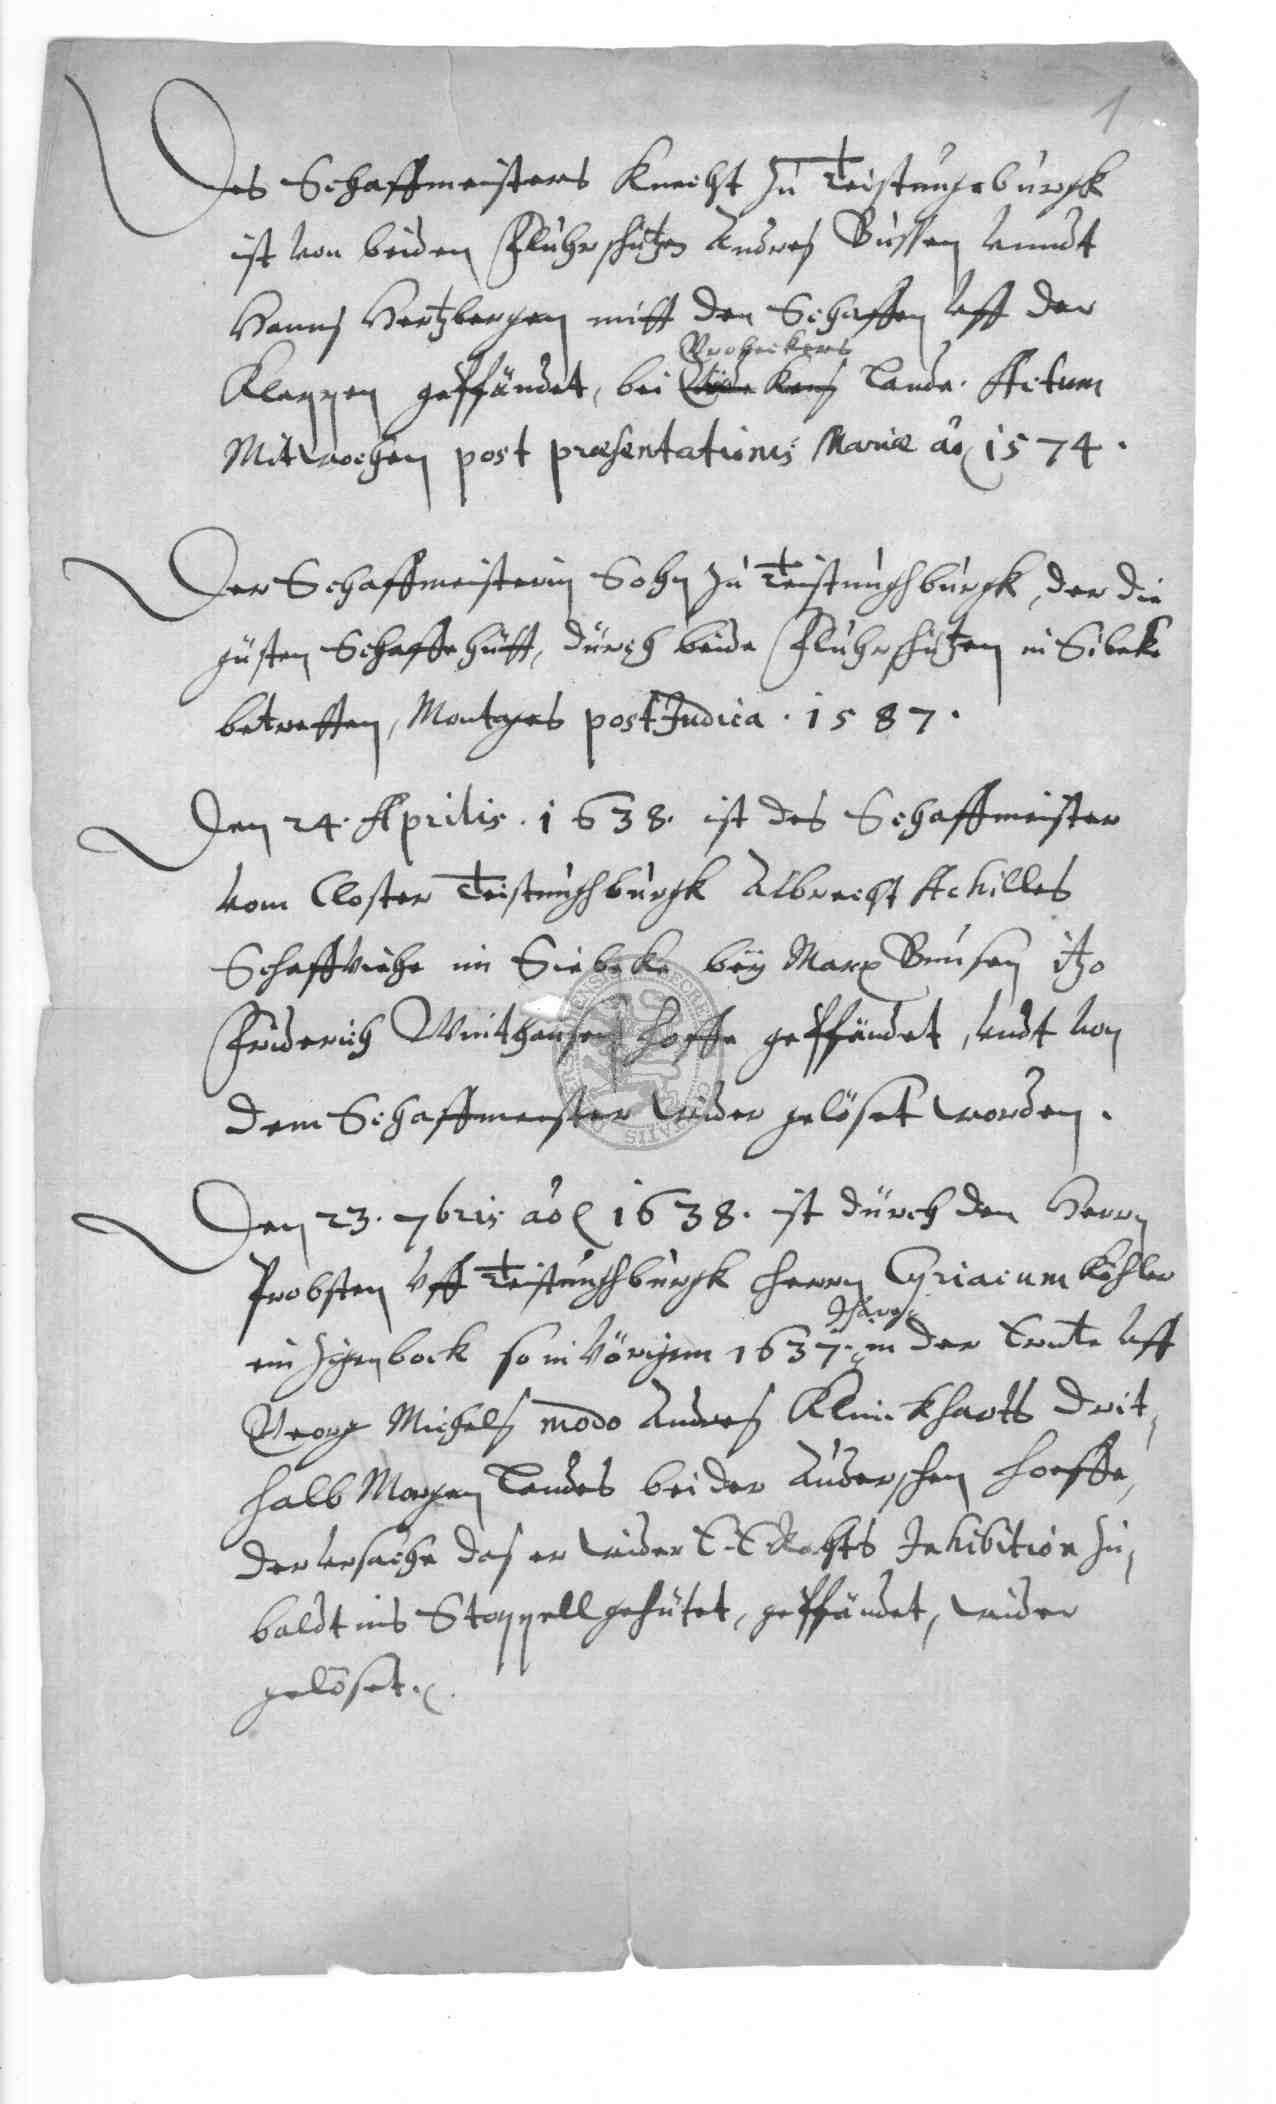 1
Des Schaffmeisters Knecht zu Teistungeburgk
ist von beiden Fluhrschützen Andres Bussen vnndt
Hanns Hertzbergen mitt den Schaffen vff der
Kleppen gepfändet, bei Landе. Actum
Mitwochen post præsentationis Mariæ ao 1574.
Der Schaffmeisterin Sohn zu Teistungsburgk, der die
güsten Schaffe hütt, durch beide Fluhrschützen in Sibeke
betretten, Montges post Judica. 1587.
Den 24. Aprilis. 1638. ist des Schaffmeister
vom Closter Teistungsburgk Albrecht Achilles
Schaffviehe im Siebeke bey Marx Bunsen itzo
Friderich Wintthausen hoffe gepfändet, vndt von
dem Schaffmeister wider gelöset worden.
Den 23. 7bris ao 1638. ist durch den Herrn
Probsten vff Teistungsburgk Herrn Cyriacum Köhler
ein Zigenbock so in vörigem 1637. in der Ernte vff
Georg Michels modo Andres Klinckharts drit-
halb Morgen Landes bei der hoeffe,
der vrsache das er wider E. E. Rahts Inhibition zu-
baldt ins Stoppell gehütet, gepfändet, wider
gelöset.